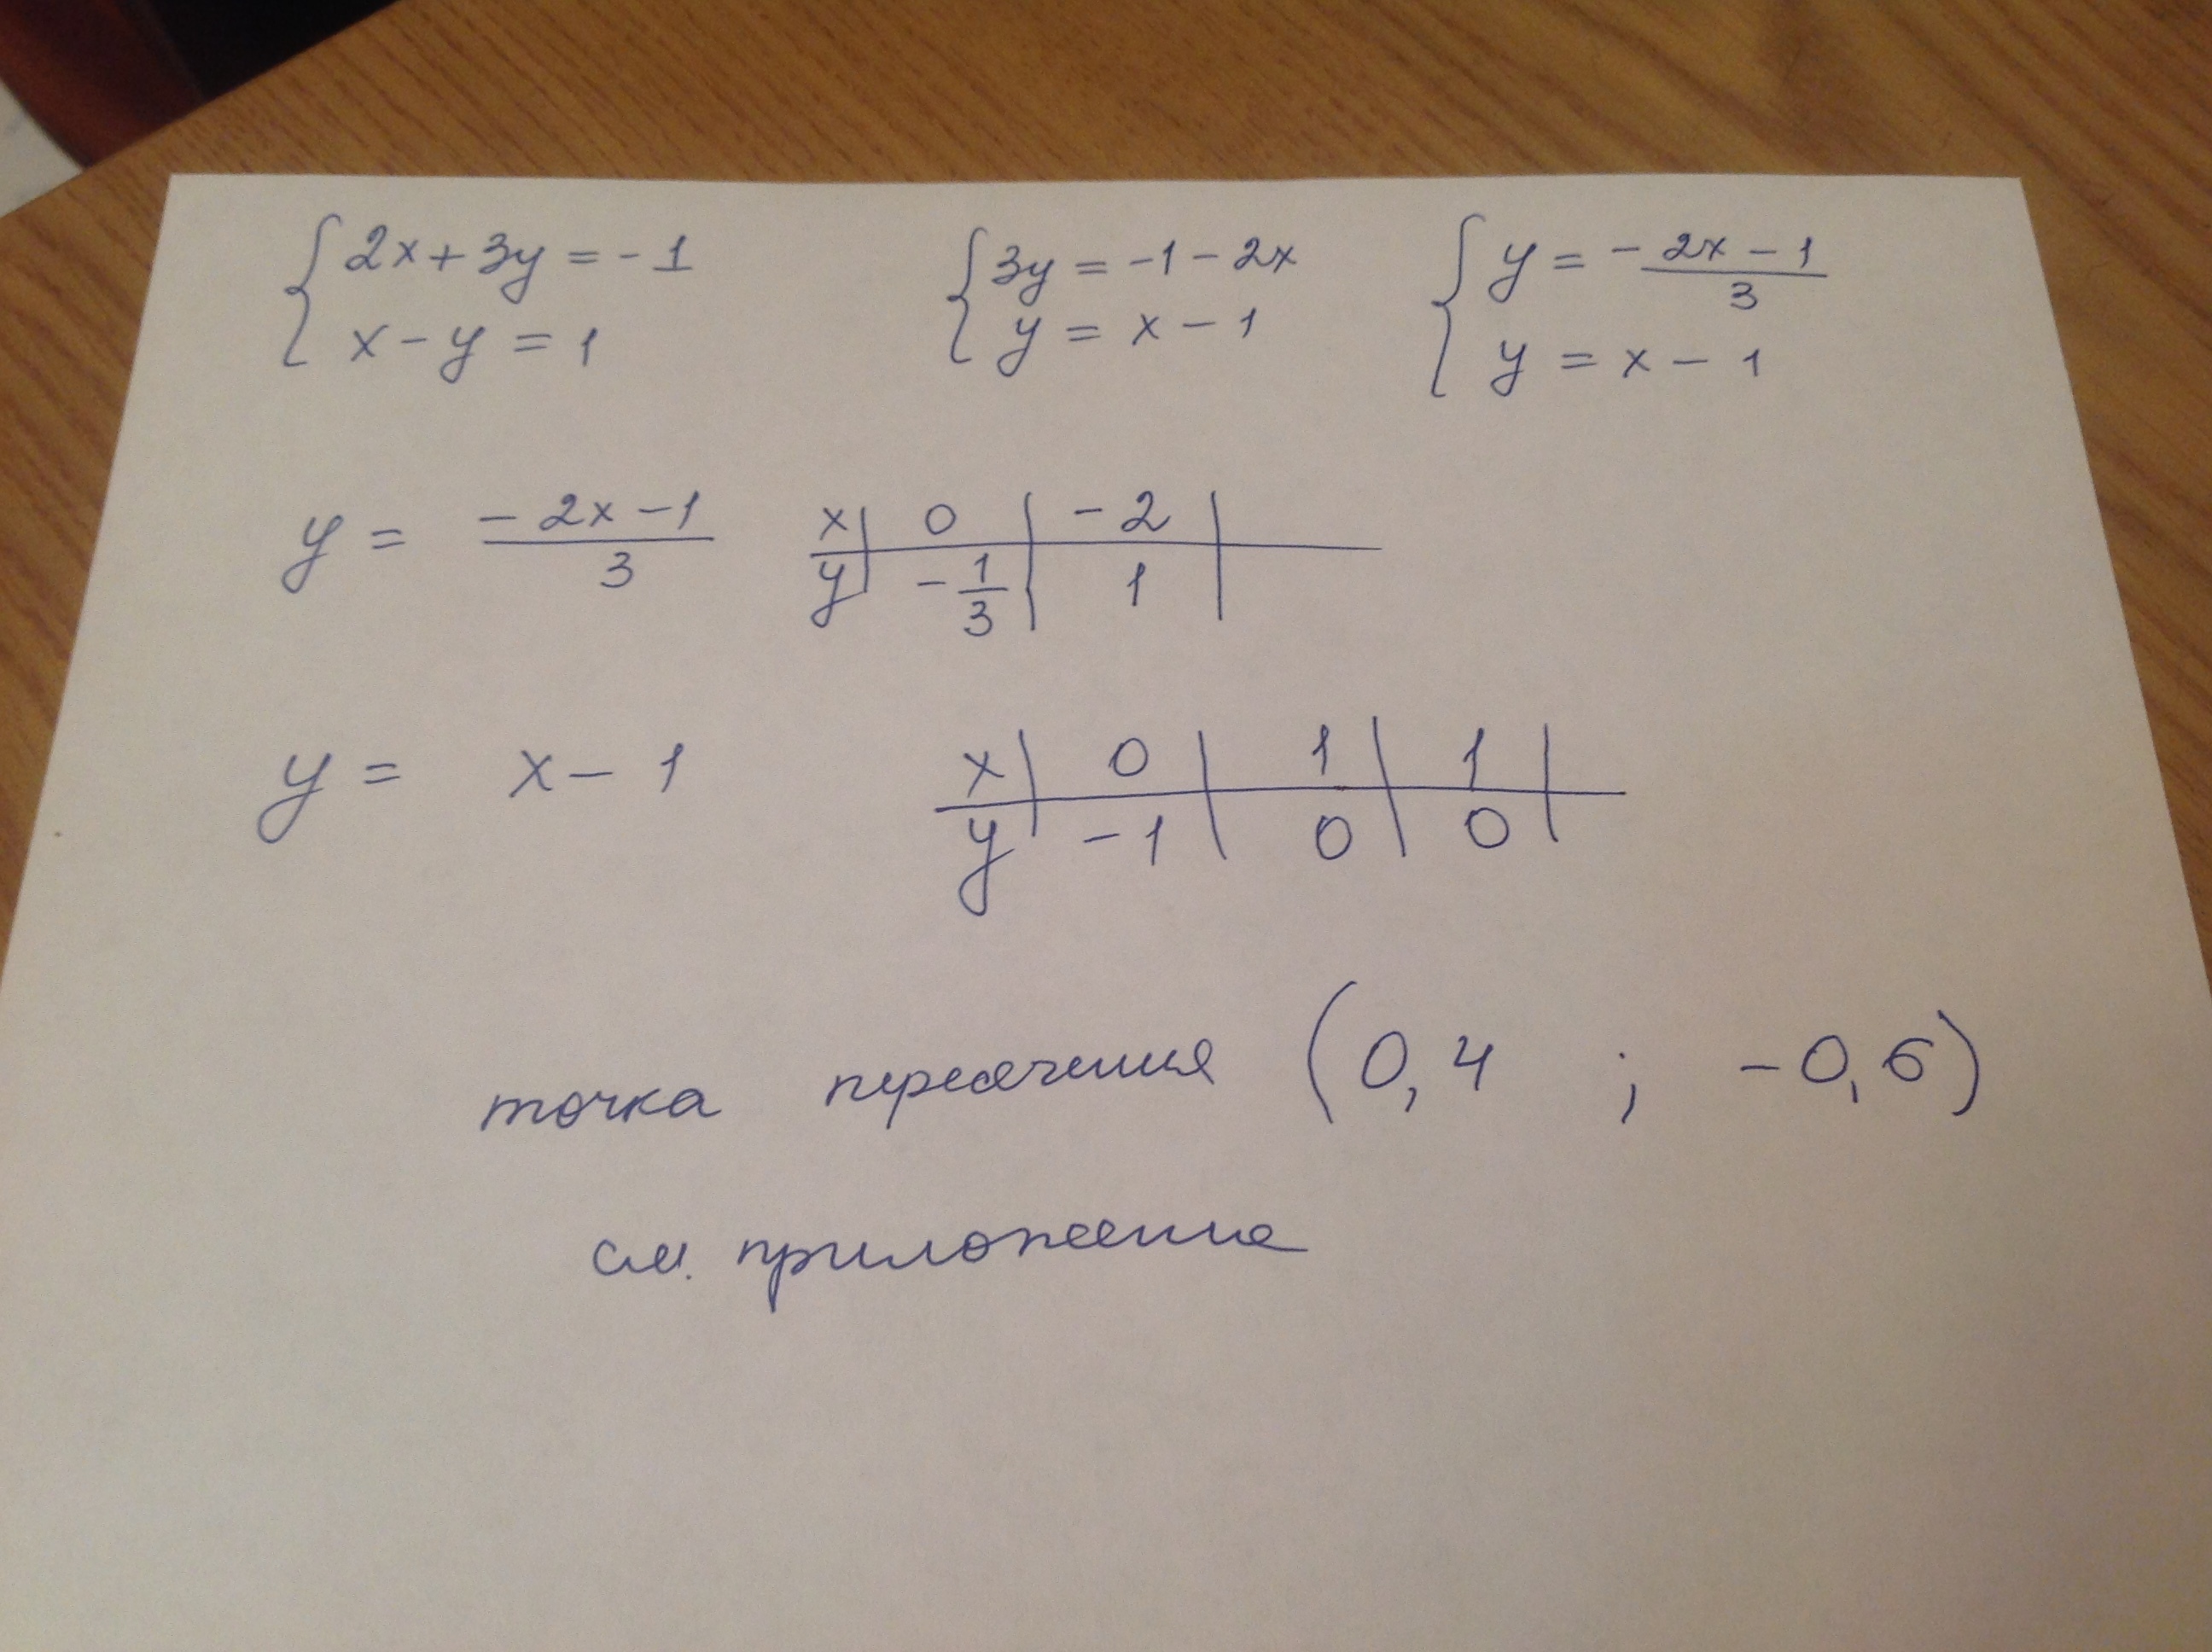 { 2x + 3y = -1 { 3y = -1 - 2x { y = - 2x - 1 / 3
x - y = 1 y = x - 1 y = x - 1
y = - 2x - 1 / 3 x | 0 | -2 |
y | - 1/3 | 1 |
y = x - 1 x | 0 | 1 | 1 |
y | -1 | 0 | 0 |
точка пересечения (0,4 ; -0,6)
см. приложение